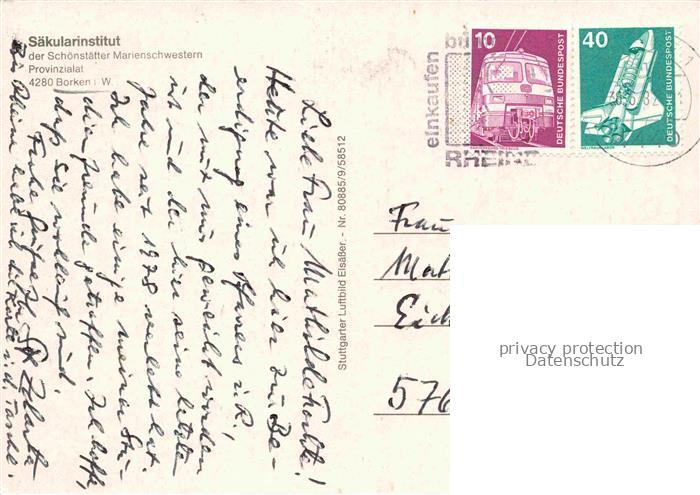 Säkularinstitut
der Schönstätter Marienschwestern
Provinzialat
4280 Borken i W
Liebe Frau Mathilde
Heute war ich hier zur Be-
erdigung eines Pfarrers i. R.,
der mit uns geweiht worden
ist und der hier seine letzten
Jahre seit 1978 verlebt hat.
Ich habe einige meiner Stu-
dienfreunde getroffen. Ich hoffe,
daß Sie wohlauf sind.
Frohe Grüße Ihr
In Rheine
die Karte in d. Tasche.
Stuttgarter Luftbild Elsäßer. - Nr. 80885/9/58512
einkaufen
RHEINE
10
DEUTSCHE BUNDESPOST
40
DEUTSCHE BUNDESPOST
Frau
Mat
Eich
576
privacy protection
Datenschutz